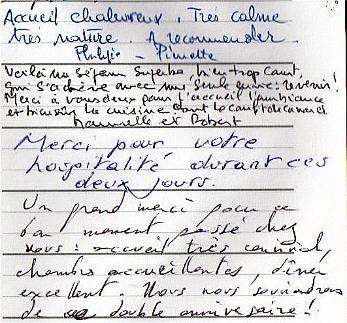 Accueil chaleureux. Très calme
très nature. A recommander
Philippe - Pierrette
Voilà un séjour superbe, bien trop court,
qui s'achève avec une seule envie: revenir!
Merci à vous deux pour l'accueil l'ambiance
et la cuisine dont le
et Robert
Merci pour votre
hospitalité durant ces
deux jours.
Un grand merci pour ce
bon moment passé chez
vous : accueil très convivial,
chambres accueillantes, dîner
excellent. Nous nous souviendrons
de ce double anniversaire!